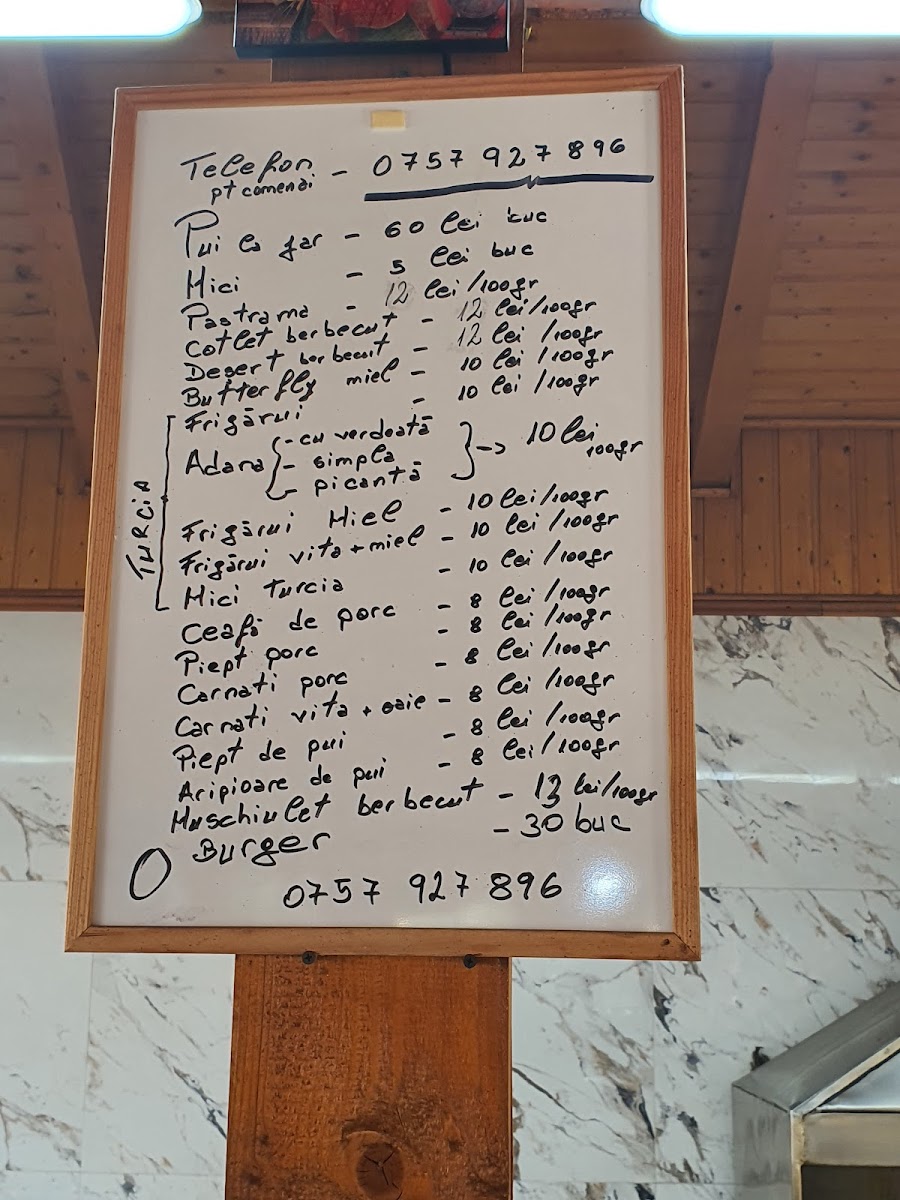 Telefon - 0757 927 896
pt comenzi
Pui la jar - 60 lei buc
Mici - 5 lei buc
Pastrama - 12 lei/100gr
Cotlet berbecut - 12 lei/100gr
Desert berbecut - 12 lei/100gr
Butterfly miel - 10 lei/100gr
Frigărui - 10 lei/100gr
TURCIA
Adana { - cu verdeată
- simpla
- picantă } -> 10 lei 100gr
Frigărui Miel - 10 lei/100gr
Frigărui vita + miel - 10 lei/100gr
Mici Turcia - 10 lei/100gr
Ceafă de porc - 8 lei/100gr
Piept porc - 8 lei/100gr
Carnati porc - 8 lei/100gr
Carnati vita + oaie - 8 lei/100gr
Piept de pui - 8 lei/100gr
Aripioare de pui - 8 lei/100gr
Muschiulet berbecut - 13 lei/100gr
Burger - 30 buc
0757 927 896